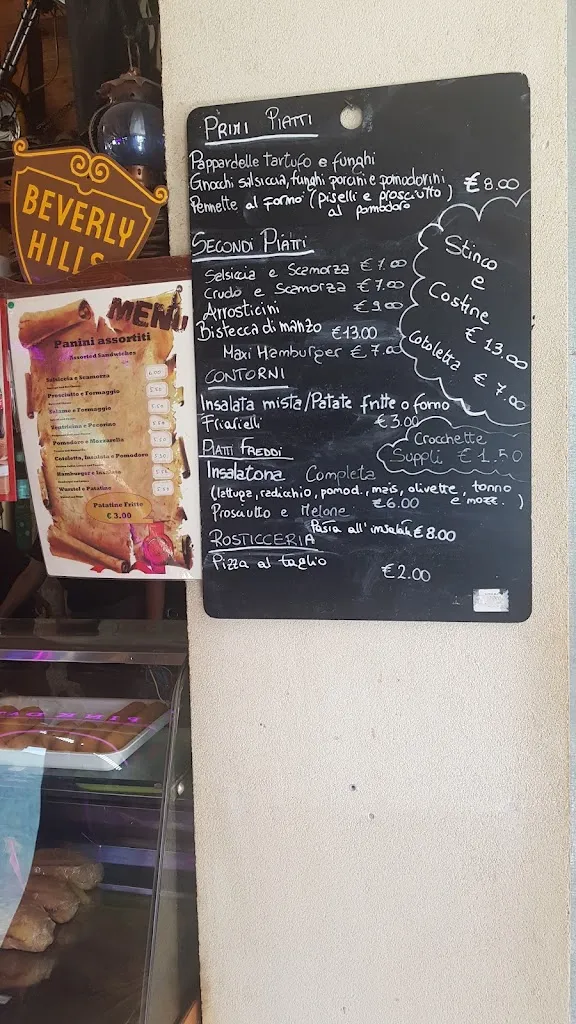 BEVERLY
HILLS
MENU
Panini assortiti
Assorted Sandwiches
Salsiccia e Scamorza
Prosciutto e Formaggio
Salame e Formaggio
Ventricina e Pecorino
Pomodoro e Mozzarella
Cotoletta, Insalata e Pomodoro
Hamburger e Insalata
Wurstel e Patatine
Patatine Fritte
€ 3.00
PRIMI PIATTI
Pappardelle tartufo e funghi
Gnocchi salsiccia, funghi porcini e pomodorini
€ 8.00
Pennette al forno (piselli e prosciutto)
al pomodoro
SECONDI PIATTI
Salsiccia e Scamorza €7.00
Crudo e Scamorza €7.00
Arrosticini €9.00
Bistecca di manzo €13.00
Maxi Hamburger €7.00
Stinco
e
Costine
€ 13.00
Cotoletta € 7.00
CONTORNI
Insalata mista/Patate fritte o forno
Friarielli €3.00
Crocchette
Supplì €1.50
PIATTI FREDDI
Insalatona Completa
(lattuga, radicchio, pomod., mais, olivette, tonno
e mozz.)
€6.00
Prosciutto e Melone
Pasta all'insalata €8.00
ROSTICCERIA
Pizza al taglio €2.00